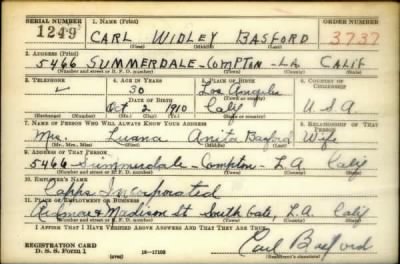 SERIAL NUMBER 1. NAME (Print) ORDER NUMBER
1249 CARL WIDLEY BASFORD 3737
(First) (Middle) (Last)
2. ADDRESS (Print)
5466 SUMMERDALE-COMPTON-LA. CALIF
(Number and street or R. F. D. number) (Town) (County) (State)
3. TELEPHONE 4. AGE IN YEARS 5. PLACE OF BIRTH 6. COUNTRY OF CITIZENSHIP
30 Los Angeles
DATE OF BIRTH (Town or county)
Oct 2 1910 Calif U.S.A
(Exchange) (Number) (Mo.) (Day) (Yr.) (State or country)
7. NAME OF PERSON WHO WILL ALWAYS KNOW YOUR ADDRESS 8. RELATIONSHIP OF THAT PERSON
Mrs. Luana Anita Basford Wife
(Mr., Mrs., Miss) (First) (Middle) (Last)
9. ADDRESS OF THAT PERSON
5466 Summerdale-Compton-L.A. Calif
(Number and street or R. F. D. number) (Town) (County) (State)
10. EMPLOYER'S NAME
Incorporated
11. PLACE OF EMPLOYMENT OR BUSINESS
& Madison St. South Gate, L.A. Calif
(Number and street or R. F. D. number) (Town) (County) (State)
I AFFIRM THAT I HAVE VERIFIED ABOVE ANSWERS AND THAT THEY ARE TRUE.
REGISTRATION CARD
D. S. S. Form 1 16-17105 Carl Basford
(Registrant's signature)